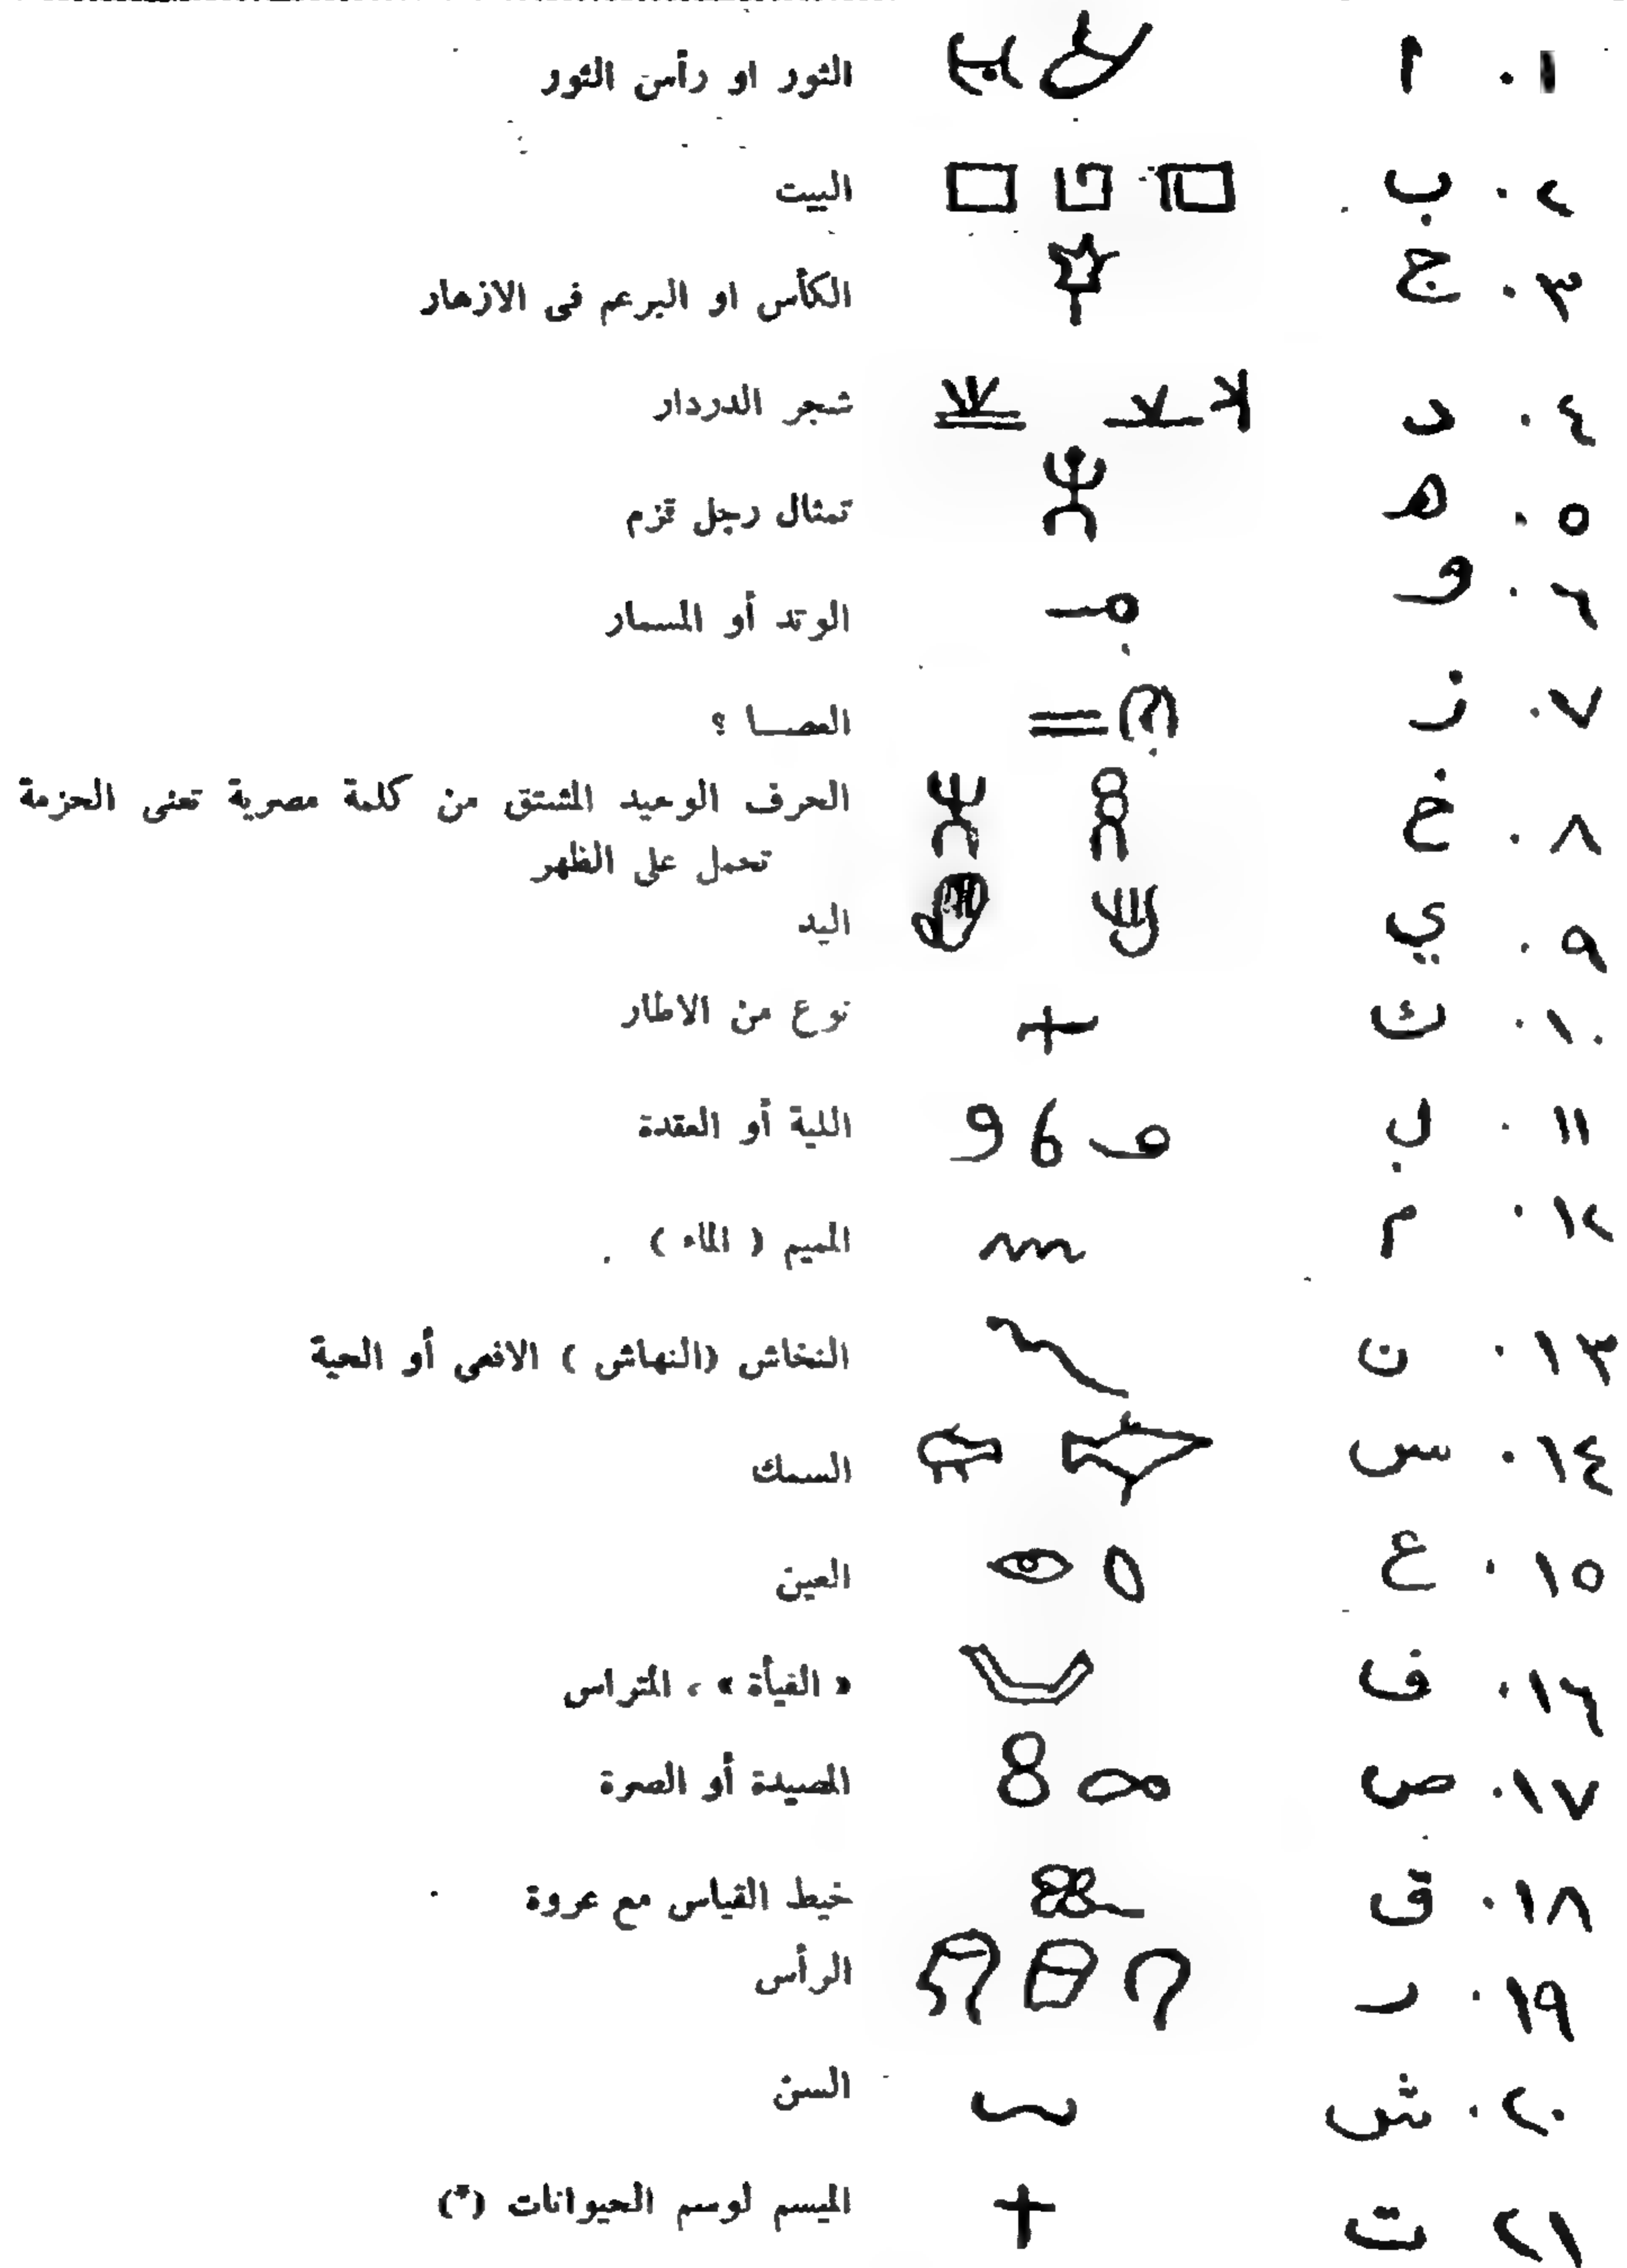 ١. ا الثور او رأس الثور
٢. ب البيت
٣. ج الكأس او البرعم فى الازهار
٤. د شجر الدردار
٥. هـ تمثال رجل قزم
٦. و الوتد أو المسمار
٧. ز العصــا ؟
٨. خ الحرف الوحيد المشتق من كلمة مصرية تعنى الحزمة
تحمل على الظهر
٩. ي اليد
١٠. ك نوع من الاطار
١١. ل اللية أو العقدة
١٢. م الميم ( الماء ) .
١٣. ن النخاش (النهاش ) الافعى أو الحية
١٤. س السمك
١٥. ع العين
١٦. ف « الفيأة » ، المتراس
١٧. ص المصيدة أو الصرة
١٨. ق خيط القياس مع عروة
١٩. ر الرأس
٢٠. ش السن
٢١ ت الميسم لوسم الحيوانات (*)